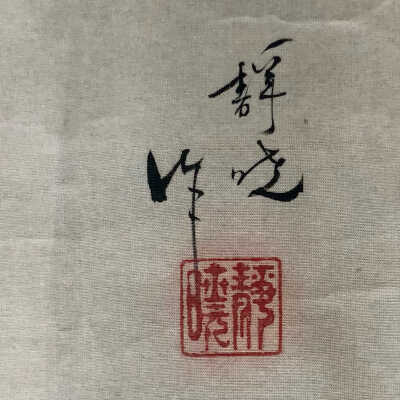 静晓
作
静晓